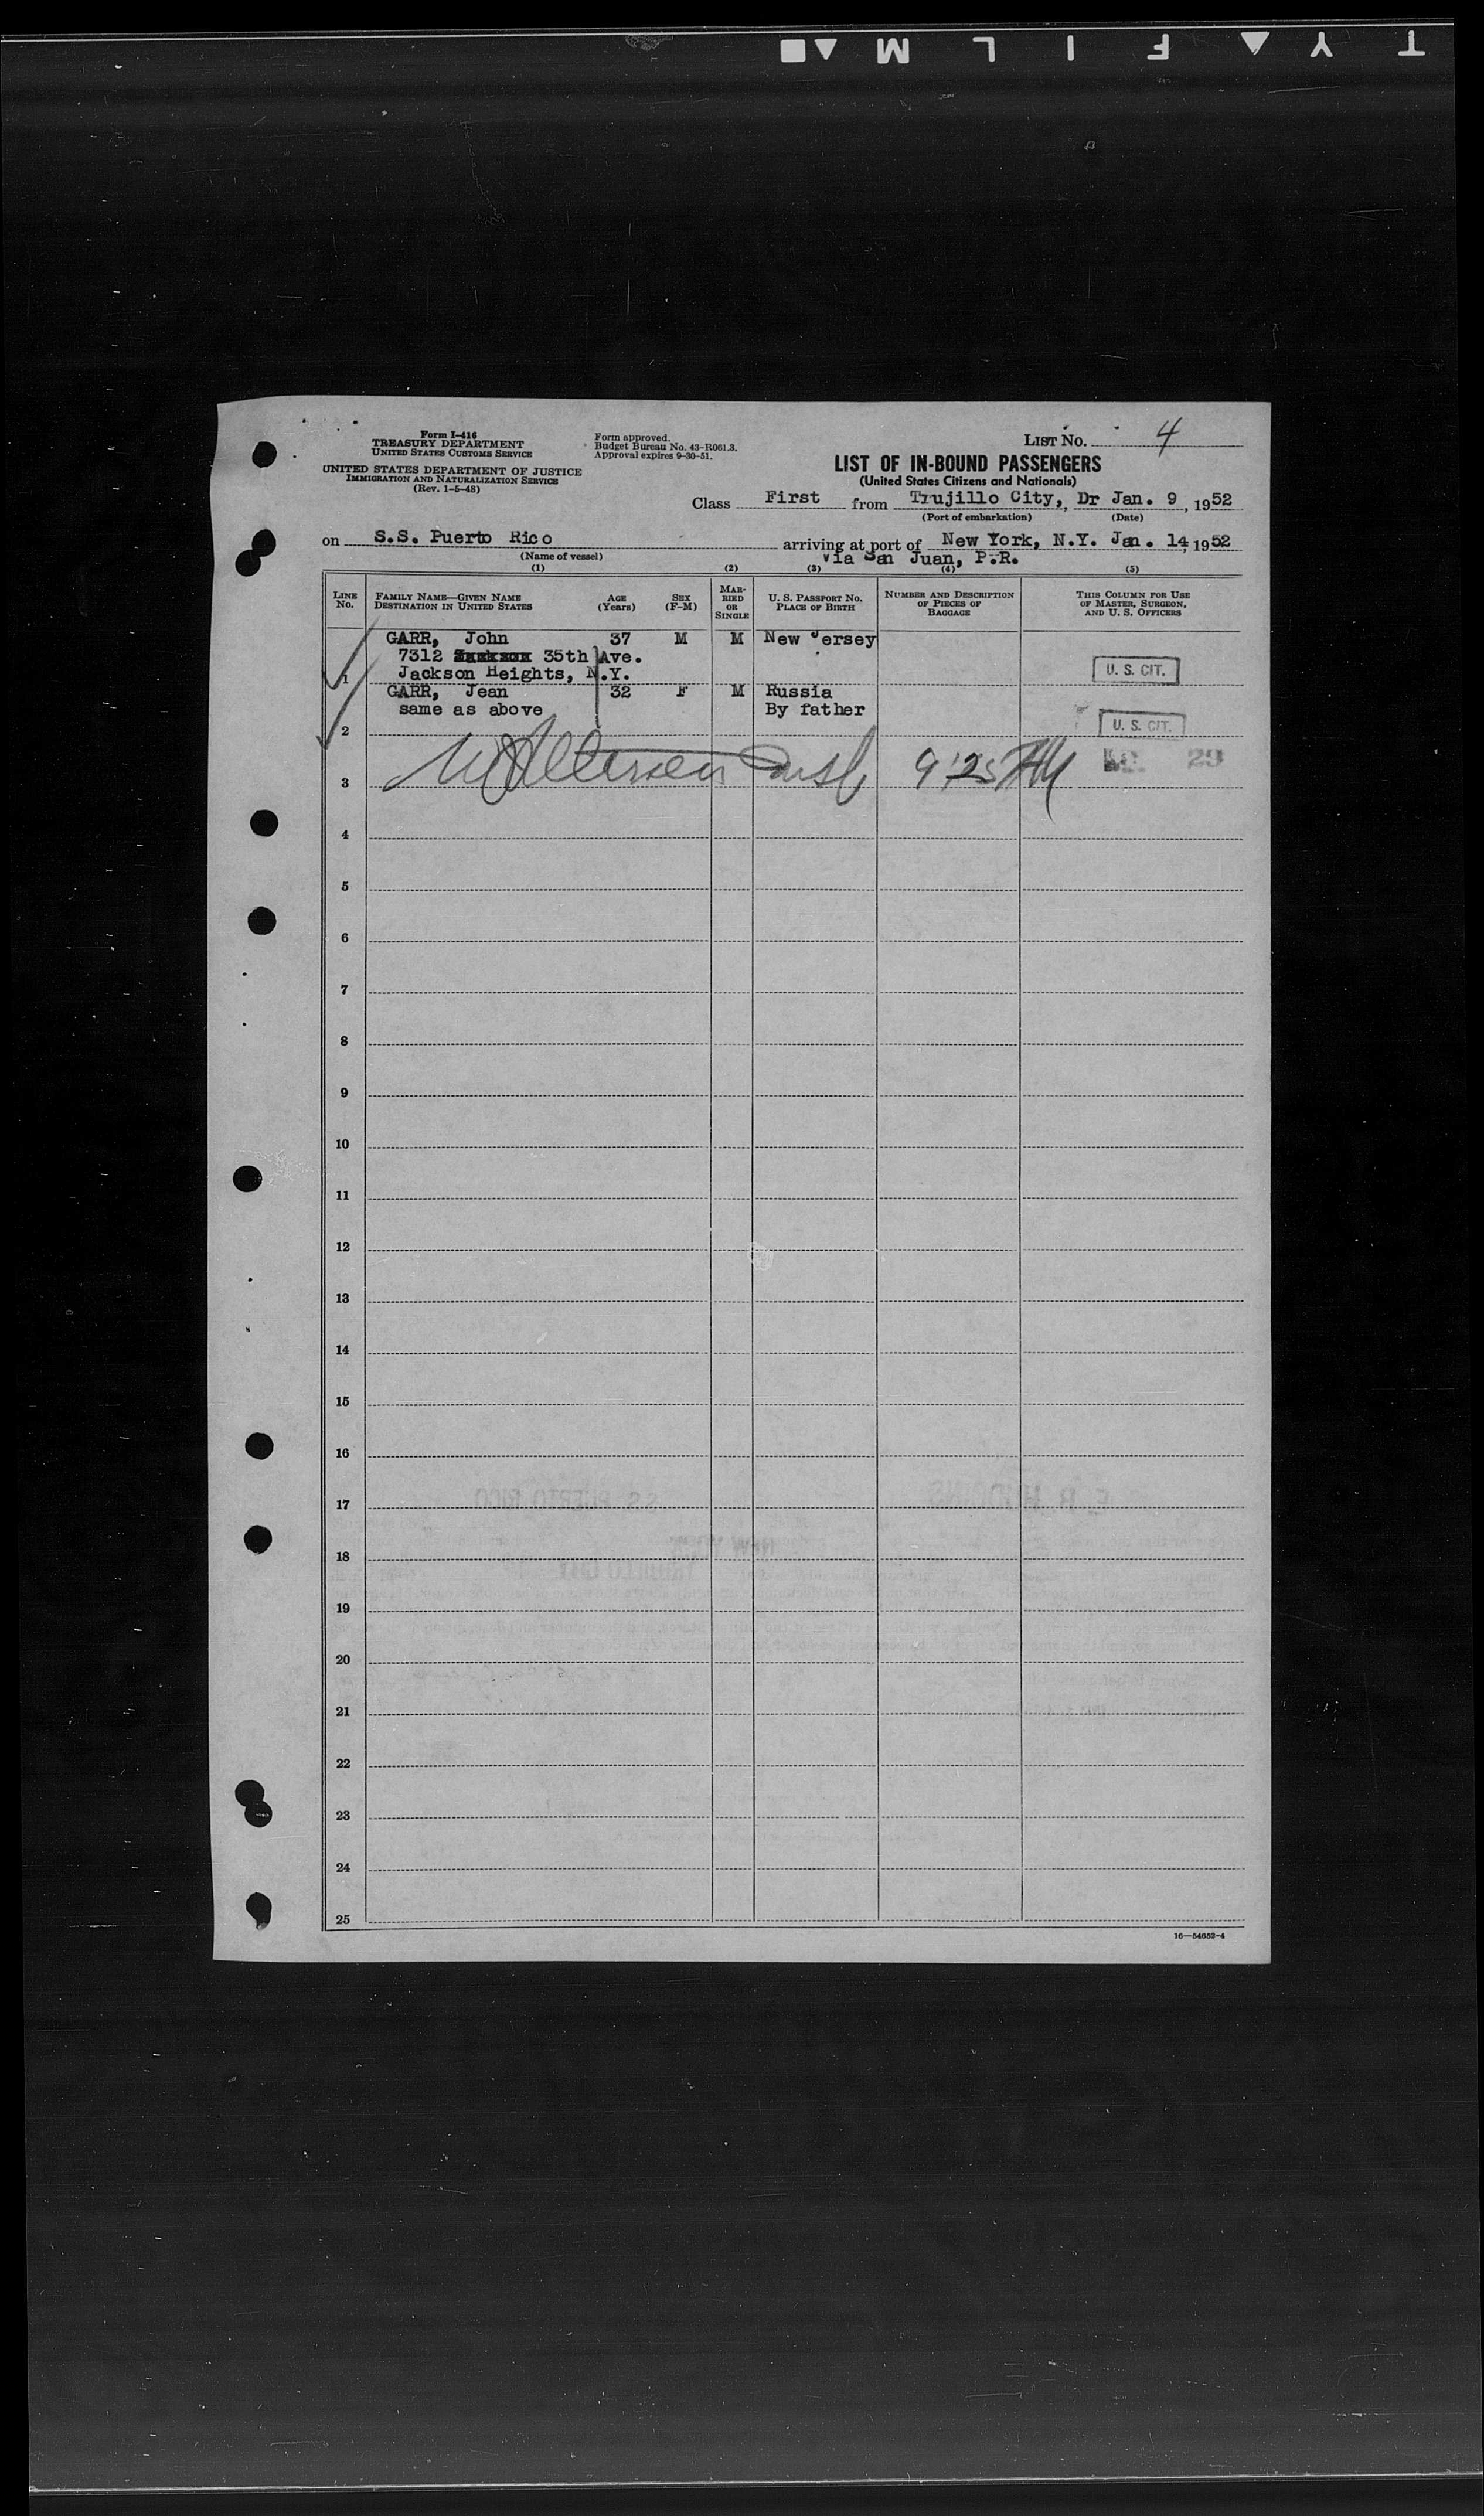 Form I-416
TREASURY DEPARTMENT
UNITED STATES CUSTOMS SERVICE
UNITED STATES DEPARTMENT OF JUSTICE
IMMIGRATION AND NATURALIZATION SERVICE
(Rev. 1-5-48)
Form approved.
Budget Bureau No. 43-R061.3.
Approval expires 9-30-51.
LIST NO. 4
LIST OF IN-BOUND PASSENGERS
(United States Citizens and Nationals)
Class First from Trujillo City, Dr Jan. 9, 1952
(Port of embarkation) (Date)
on S.S. Puerto Rico arriving at port of New York, N.Y. Jan. 14, 1952
(Name of vessel) via San Juan, P.R.
(1) (2) (3) (4) (5)
LINE NO. FAMILY NAME—GIVEN NAME DESTINATION IN UNITED STATES AGE (Years) SEX (F-M) MARRIED OR SINGLE U. S. PASSPORT NO. PLACE OF BIRTH NUMBER AND DESCRIPTION OF PIECES OF BAGGAGE THIS COLUMN FOR USE OF MASTER, SURGEON, AND U. S. OFFICERS
GARR, John 37 M M New Jersey
7312 35th Ave.
1 Jackson Heights, N.Y. U. S. CIT.
GARR, Jean 32 F M Russia
same as above By father
2 U. S. CIT.
3 9:25 AM 29
4
5
6
7
8
9
10
11
12
13
14
15
16
17
18
19
20
21
22
23
24
25
16—54652-4